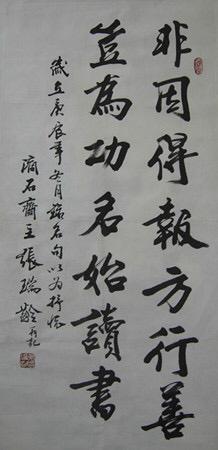 非因得報方行善
豈為功名始讀書
歲在庚辰年冬月錄名句以為抒懷
滴石齋主張瑞齡并記